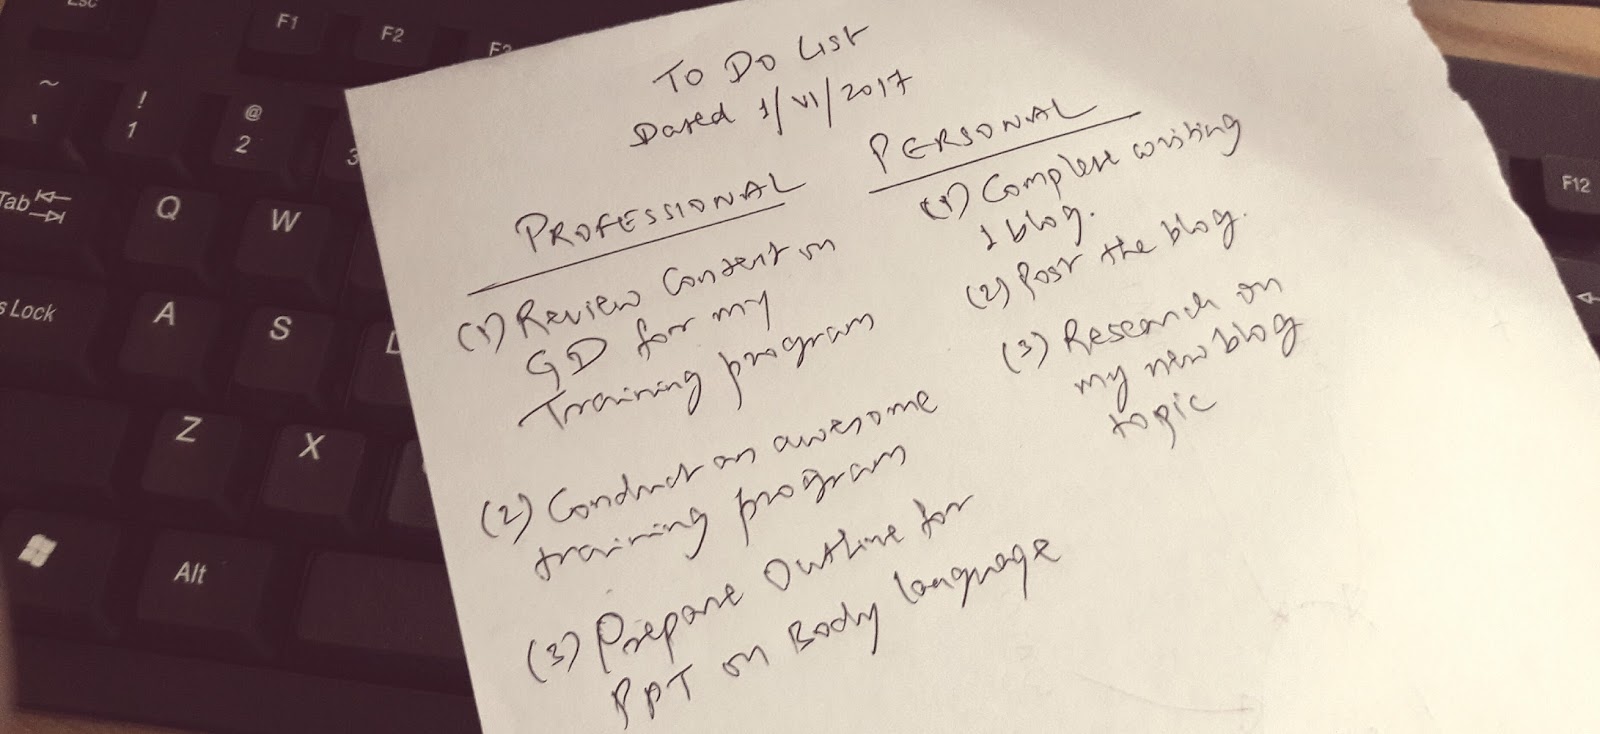 Esc
F1
F2
F3
~
`
!
1
@
2
3
Tab
Q
W
s Lock
A
S
Z
X
Alt
F12
To Do List
Dated 1/VI/2017
PROFESSIONAL
(1) Review Content on
GD for my
Training program
(2) Conduct an awesome
training program
(3) Prepare Outline for
PPT on Body language
PERSONAL
(1) Complete writing
1 blog.
(2) Post the blog.
(3) Research on
my new blog
topic